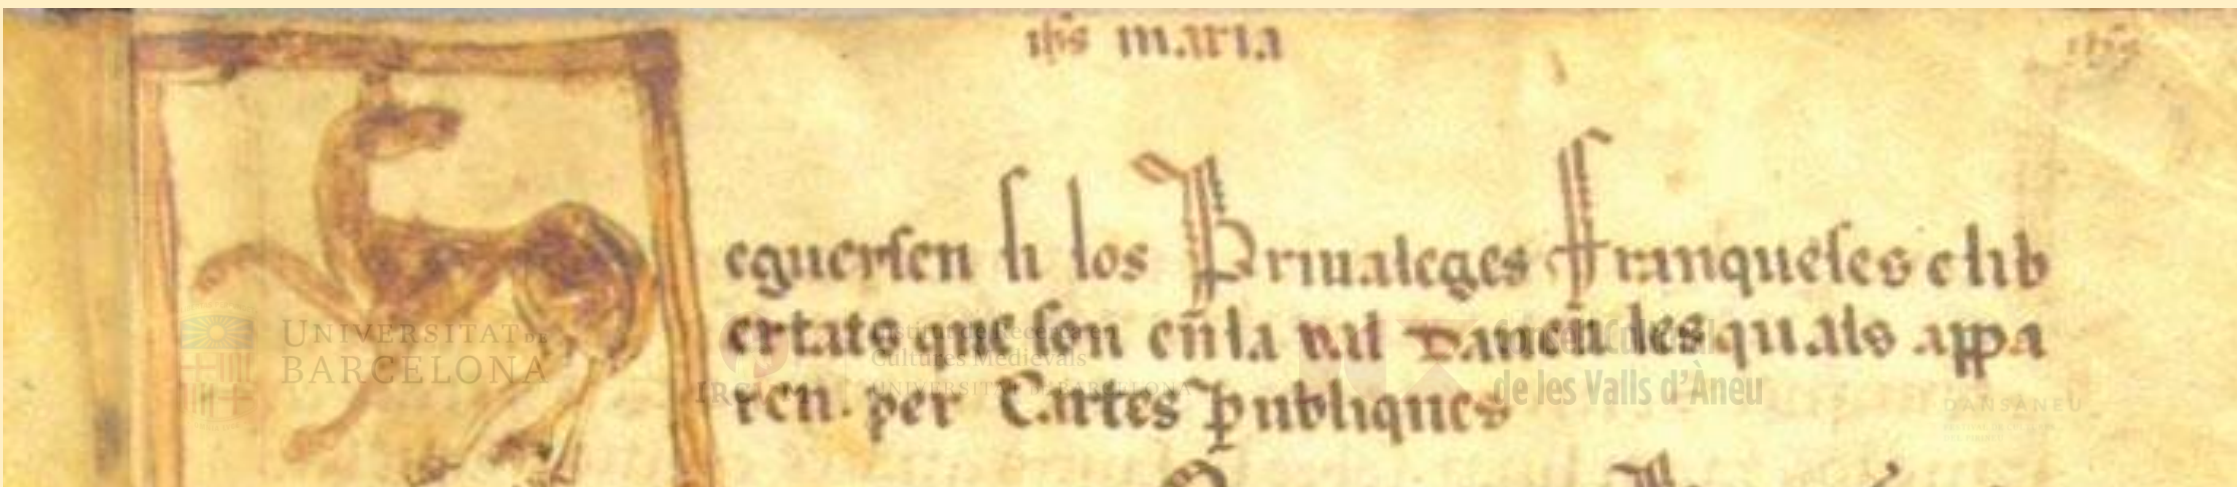 ihs maria
eguersen hi los Priualeges ffranqueses e lib
ertats que son en la val daneu les quals appa
ren. per Cartes publiques
UNIVERSITAT DE
BARCELONA
Cultures Medievals
UNIVERSITAT DE BARCELONA
de les Valls d'Àneu
DANSÀNEU